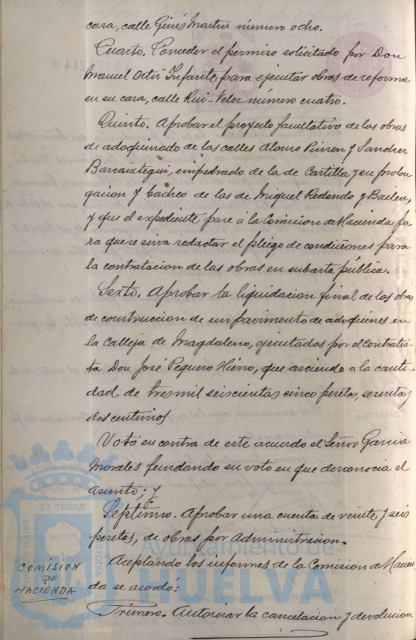 casa, calle Ginés Martín número ocho.
Cuarto. Conceder el permiso solicitado por Don
Manuel Ortiz Infante para ejecutar obras de reforma
en su casa, calle Rui-Velez número cuatro.
Quinto. Aprobar el proyecto facultativo de las obras
de adoquinado de las calles Alonso Pinzon y Sanchez
Barcaiztegui, empedrado de la de Castilla y en prolon
gacion y bacheo de las de Miguel Redondo y Bailen,
y que el expediente pase á la Comision de Hacienda pa
ra que se sirva redactar el pliego de condiciones para
la contratacion de las obras en subasta pública.
Sexto. Aprobar la liquidacion final de las obras
de construccion de un pavimento de adoquines en
la Calleja de Magdaleno, ejecutados por el contratis
ta Don José Peguero Hierro, que asciende á la canti
dad de tres mil seiscientas cinco pesetas, sesenta y
dos centimos
Votó en contra de este acuerdo el Señor Garcia
Morales fundando su voto en que desconocia el
asunto; y
Septimo. Aprobar una cuenta de veinte y seis
pesetas, de obras por Administracion.
COMISION
DE
HACIENDA
Aceptando los informes de la Comision de Hacien
da se acordó:
Primero. Autorizar la cancelacion y devolucion
Ayuntamiento de
HUELVA